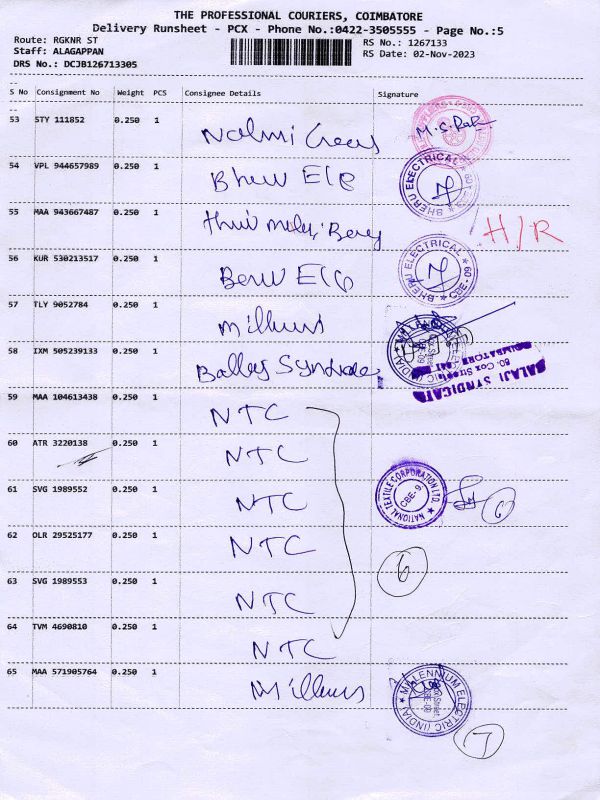 THE PROFESSIONAL COURIERS, COIMBATORE
Delivery Runsheet - PCX - Phone No.:0422-3505555 - Page No.:5
Route: RGKNR ST RS No.: 1267133
Staff: ALAGAPPAN RS Date: 02-Nov-2023
DRS No.: DCJB126713305
S No Consignment No Weight PCS Consignee Details Signature
53 STY 111852 0.250 1 M.S.
54 VPL 944657989 0.250 1 Bheru Ele BHERU ELECTRICAL
55 MAA 943667487 0.250 1 H/R
56 KUR 530213517 0.250 1 Ele BHERU ELECTRICAL CBE-09
57 TLY 9052784 0.250 1
58 IXM 505239133 0.250 1 BALAJI SYNDICATE
60, Cox Street
COIMBATORE
59 MAA 104613438 0.250 1 NTC
60 ATR 3220138 0.250 1 NTC
61 SVG 1989552 0.250 1 NTC NATIONAL TEXTILE CORPORATION LTD. CBE-9 6
62 OLR 29525177 0.250 1 NTC 6
63 SVG 1989553 0.250 1 NTC
64 TVM 4690810 0.250 1 NTC
65 MAA 571905764 0.250 1 MILLENNIUM ELECTRIC (INDIA)
7